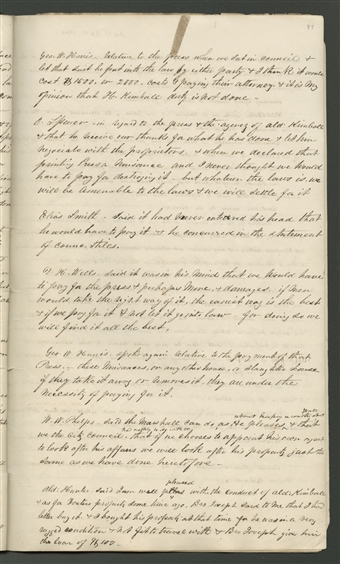 Geo. W. Harris. Relative to the press when we sat in council &
let that suit be font into the law by either party & I think it would
cost $1500. or 2000. costs & paying their attorney & it is my
opinion that H. Kimball duty is not done -
O. Spencer - in regard to the press & the agency of ald. Kimball
& that he receive our thanks for what he has done & let him
negociate with the proprietors. & when we declared that
printing press a Nuisance and I never thought we should
have to pay for destroying it but whatever the laws is. we
will be amenable to the laws & we will settle for it
Elias Smith - said it had never entered his head that
he would have to pay it & he concurred in the statement
of counc. Stiles.
D. H. Wells. said it was in his mind that we should have
to pay for the press & perhaps more & damages. if men
would take the right way of it. the easiest way is the best
& if we pay for it & not let it go into law - for doing so we
will find it all the best.
Geo. W. Harris. spoke again relative to the payment of that
Press - these Nuisances, or any other house, or slaughter house
if they take it away or remove it. they are under the
necesity of paying for it.
W. W. Phelps. said the Marshall can do as He pleases & that
we the City Council. that if we chooses to appoint his own agent
to look after his affairs we will look after his property Just the
same as we have done heretofore -
Ald. Hunter said I am well pleased with the conduct of alds. Kimball
& as for Fosters property some time ago, Bro Joseph said to me that I had
better buy it & I bought his property at that time he was in a very
ragid condition & not fit to travel with & Bro Joseph give him
the loan of $1,100 -